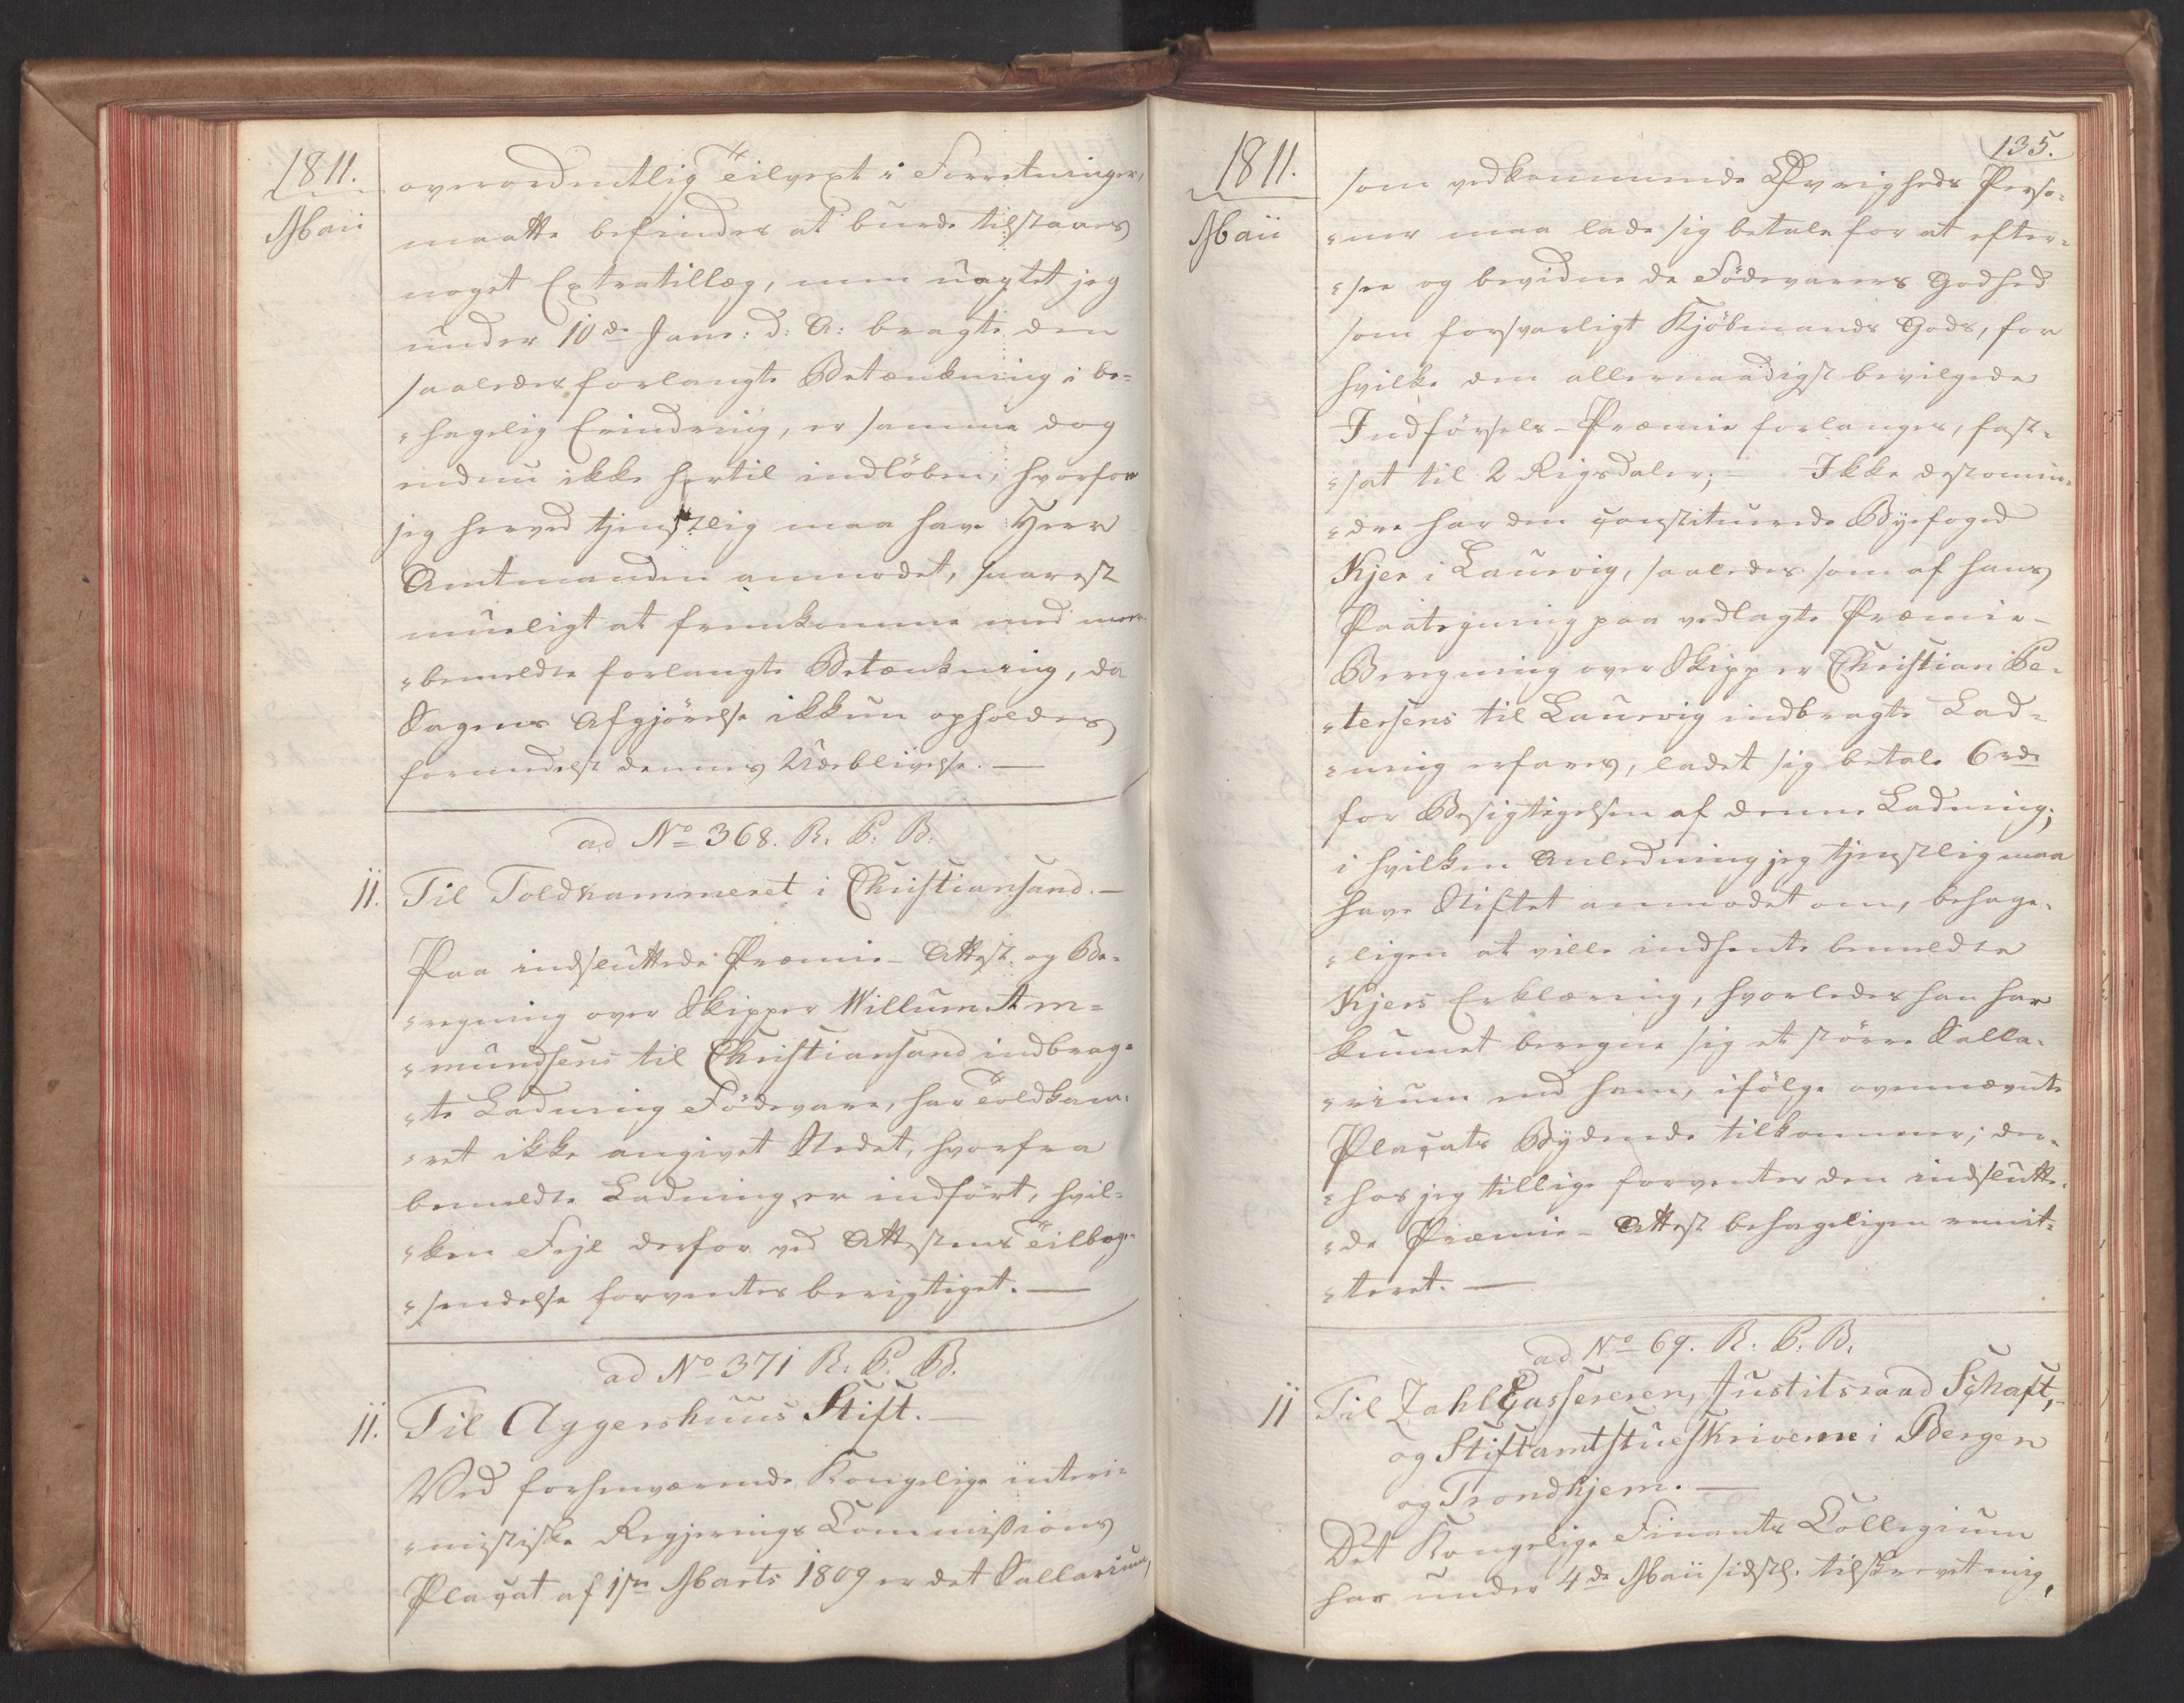 1811.
Maii
overordentlig Tilvext i Forretninger,
maatte befindes at burde tilstaaes
noget Extratillæg, men uagtet jeg
under 10de Janr: d: A: bragte den
saaledes forlangte Betænkning i be-
"hagelig Erindring, er samme dog
endnu ikke hertil indløben, hvorfor
jeg herved tjenstlig maa have Herr
Amtmanden anmodet, snarest
mueligt at fremkomme med meer-
"bemeldte forlangte Betænkning, da
Sagens Afgjørelse ikkun opholdes
formedelst dennes Udeblivelse. —
ad No 368. R. P. B.
11. Til Toldkammeret i Christiansand. —
Paa indsluttede Præmie-Attest og Be-
"regning over Skipper Willum Am-
"mundsens til Christiansand indbrag-
"te Ladning Fødevare, har Toldkam-
"ret ikke angivet Stedet, hvorfra
bemeldte Ladning er indført, hvil-
"ken Fejl derfor ved Attestens Tilbage-
"sendelse forventes berigtiget. —
ad No 371 R. P. B.
11. Til Aggershuus Stift. —
Ved forhenværende Kongelige interi-
"mistiske Regjerings Commissions
Placat af 1ste Marts 1809 er det Sallarium,
135.
1811.
Maii
som vedkommende Øvrigheds Perso-
"ner maa lade sig betale for at efter-
"see og bevidne de Fødevarers Godhed
som forsvarligt Kjøbmands Gods, for
hvilke den allernaadigst bevilgede
Indførsels-Præmie forlanges, fast-
"sat til 2 Rigsdaler; — Ikke destomin-
"dre har den constituerede Byefoged
Kjer i Laurvig, saaledes som af hans
Paategning paa vedlagte Præmie-
Beregning over Skipper Christian Pe-
"tersens til Laurvig indbragte Lad-
"ning erfares, ladet sig betale 6 rdr
for Besigtigelsen af denne Ladning;
i hvilken Anledning jeg tjenstlig maa
have Stiftet anmodet om, behage-
"ligen at ville indhente bemeldte
Kjers Erklæring, hvorledes han har
kunnet beregne sig et større Salla-
"rium end ham, ifølge ovennævnte
Placats Bydende tilkommer; der-
"hos jeg tillige forventer den indslutte-
"de Præmie-Attest behageligen remit-
"teret. —
ad No 69. R. P. B.
11 Til Zahlcassereren, Justitsraad Schaft,
og Stiftamtstueskriverne i Bergen
og Trondhjem. —
Det Kongelige Finants Collegium
har under 4de Maii sidstl. tilskrevet mig,